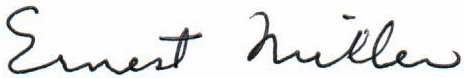 Ernest Miller